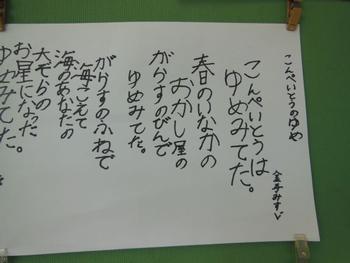 こんぺいとうのゆめ
金子みすゞ
こんぺいとうは
ゆめみてた。
春のいなかの
おかし屋の
がらすのびんで
ゆめみてた。
がらすのふねで
海こえて
海のあなたの
大ぞらの
お星になった
ゆめみてた。